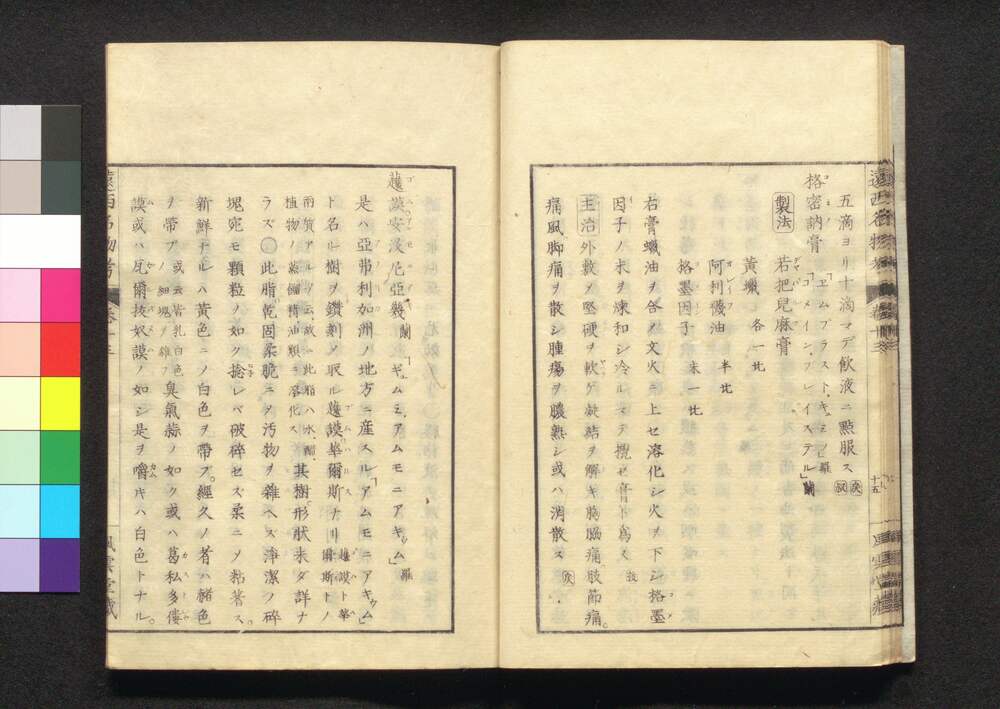 五滴ヨリ十滴マデ飲液ニ點服ス
格密訥膏
「ヱムプラスト、キュミノ」羅
「コメイン、プレイステル」蘭
製法 若把兒麻膏
黃蠟 各一比
阿利襪油 半比
格墨因子 末一比
右膏蠟油ヲ合ノ文火ニ上セ溶化シ火ヲ下シ格墨
因子ノ末ヲ煉和シ冷ルマデ攪セ膏ト爲ス
主治 外敷ノ堅硬ヲ軟ゲ凝結ヲ解キ腸臌痛肢節痛。
痛風脚痛ヲ散シ腫瘍ヲ膿熟シ或ハ消散ス
遠西名物考 卷十三
十五
風雲堂藏
越謨安沒尼亞幾 蘭 「ギムミ、アムモニアキュム」羅
是ハ亞弗利加洲ノ地方ニ産スル「アムモニアキュム」
ト名ル樹ヲ鑽刺ノ取ル越謨華爾斯ナリ 越謨ト華爾斯トノ
兩質アルヲ云故ニ此脂ハ水、酒、
植物ノ蒸餾精油類ニ溶化ス 其樹。形狀未ダ詳ナ
ラズ〇此脂乾固柔脆ニノ汚物ヲ雜ヘズ淨潔ノ碎
塊宛モ顆粒ノ如ク捻レバ破碎セズ柔ニノ粘著ス。
新鮮ナルハ黃色ニノ白色ヲ帶フ。經久ノ者ハ赭色
ヲ帶ブ 或云皆乳白色ノ細塊ヲ雜フ 臭氣蒜ノ如ク或ハ葛私多僂
謨或ハ瓦爾抜奴謨ノ如シ是ヲ嚼キハ白色トナル。
遠西名物考 卷十三
風雲堂藏